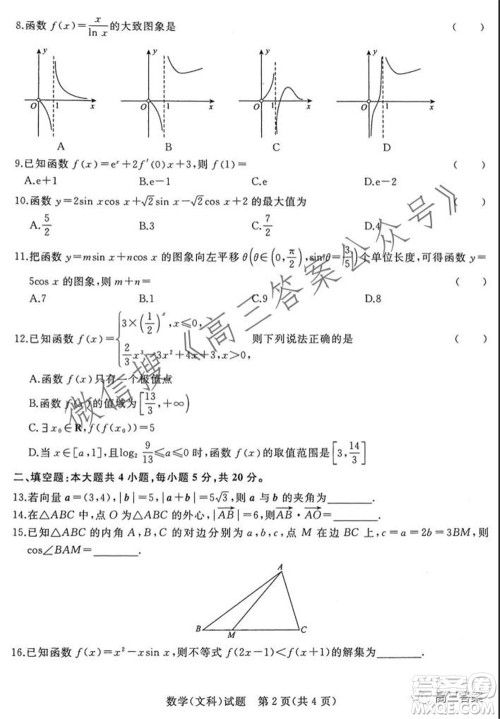 8.函数 f(x)=x/ln x 的大致图象是 （ ）
y y y y
O 1 x O 1 x O 1 x O 1 x
A B C D
9.已知函数 f(x)=eˣ+2f′(0)x+3,则 f(1)= （ ）
A.e+1 B.e−1 C.e D.e−2
10.函数 y=2sin xcos x+√2sin x−√2cos x+2 的最大值为 （ ）
A.5/2 B.3 C.7/2 D.4
11.把函数 y=msin x+ncos x 的图象向左平移 θ(θ∈(0,π/2),sin θ=3/5)个单位长度,可得函数 y=
5cos x 的图象,则 m+n= （ ）
A.7 B.1 C.9 D.8
12.已知函数 f(x)={3×(1/2)ˣ,x≤0, 2/3x³−3x²+4x+3,x>0, 则下列说法正确的是 （ ）
A.函数 f(x)只有一个极值点
B.函数 f(x)的值域为[13/3,+∞)
C.∃x₀∈R,f(f(x₀))
D.当 x∈[a,1],且 log₂9/13≤a≤0 时,函数 f(x)的取值范围是[3,14/3]
二、填空题:本大题共 4 小题,每小题 5 分,共 20 分。
13.若向量 a=(3,4),|b|=5,|a+b|=5√3,则 a 与 b 的夹角为
14.在△ABC 中,点 O 为△ABC 外心,|AB|=6,则AB·AO=
15.已知△ABC 的内角 A,B,C 的对边分别为 a,b,c,点 M 在边 BC 上,c=a=2b=3BM,则
cos∠BAM=
A
B M C
16.已知函数 f(x)=x²−xsin x,则不等式 f(2x−1)<f(x+1)的解集为
数学(文科)试题 第 2 页(共 4 页)
微信搜《高三答案公众号》
高三答案